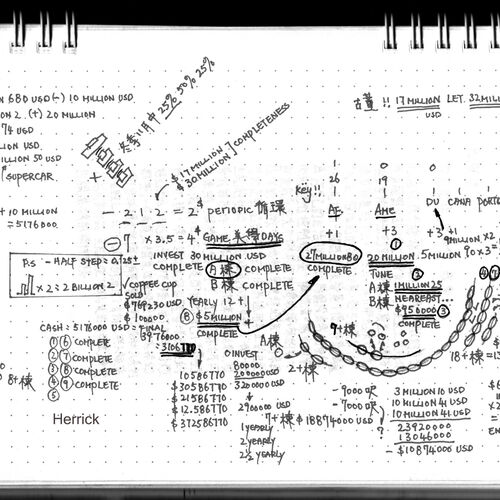 N 680 USD (-) 10 MILLION USD
ON 2. (+) 20 MILLION
74 USD
LLION USD
ILLION 50 USD
"SUPERCAR.
+ 10 MILLION
=5176000
冬季11月中 25% 50% 25%
+
$17 MILLION
$30 MILLION ] COMPLETENESS
古董 !! 17 MILLION LET. 32 MILL
USD
1 0
26 19
KEY !! AE AME DU CANA PORTE
+1 +3 +3
- 2 1 2 = 2$ PERIODIC 循環
- 7 × 3.5 = 4$ GAME 美學 DAYS
INVEST 30 MILLION USD
COMPLETE A棟 COMPLETE
COMPLETE B棟 COMPLETE
27 MILLION 80
COMPLETE
① 20 MILLION
TUNE ②
A棟 1 MILLION 25
B棟 NEAREAST...
$956000 ③
COMPLETE
9 MILLION ×2
.5 MILLION 70 ×3 =
P.S - HALF STEP = 0.25 ±
×2 = 2 BILLION 2
√ COFFEE CUP
SOLD
$769230 USD
$100000
YEARLY 12 +1
⑧ $5 MILLION
COMPLETE
CASH = 5176000 USD = FINAL
3976000
=3106770
① ⑥ COMPLETE
② ⑦ COMPLETE
③ ⑧ COMPLETE
④ ⑨ COMPLETE
⑤
8+棟
A棟
7+棟
2+棟
18+棟
10586770
$30586770
$21586770
$12.586770
$372586770
0 INVEST
80000
200000 USD
3200000 USD
↓
2900000 USD
7+棟 $18874000 USD
1 YEARLY
2 YEARLY
2½ YEARLY
-9000 呎
-7000 呎
?
3 MILLION 10 USD
10 MILLION 41 USD
10 MILLION 41 USD
23920000
13046000
-$10874000 USD
Herrick